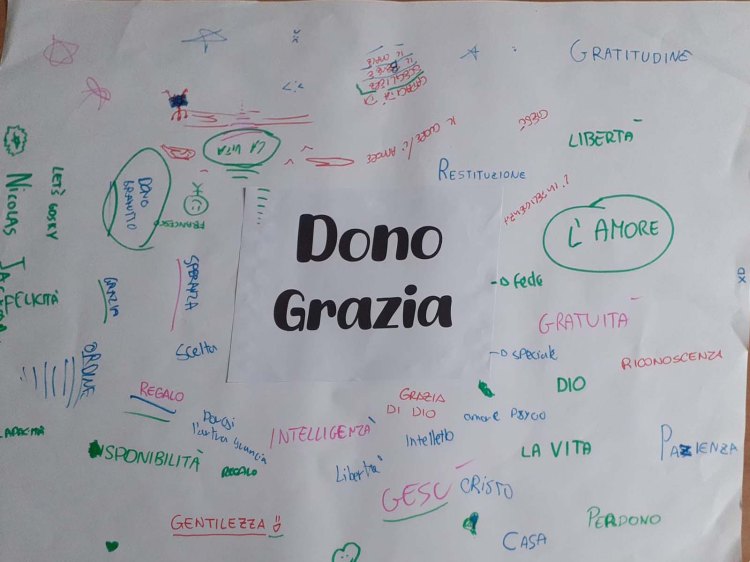 GRATITUDINE
CAPACITÀ DI
SCEGLIERE
IL BENE E
IL MALE
IL CUORE / L'AMORE
GESÙ
LA VITA
LIBERTÀ
RESTITUZIONE
L'INTELLIGENZA
LET'S GOSKY
NICOLAS
DONO
GRATUITO
FRANCESCO
L'AMORE
Dono
Grazia
FELICITÀ
GRAZIA
SPERANZA
Fede
GRATUITÀ
ORDINE
Scelta
speciale
RICONOSCENZA
DIO
REGALO
GRAZIA
DI DIO
Porgi
l'altra guancia
INTELLIGENZA
Intelletto
amore
LA VITA
PAZIENZA
DISPONIBILITÀ
REGALO
Libertà
GESÙ CRISTO
GENTILEZZA
CASA
PERDONO